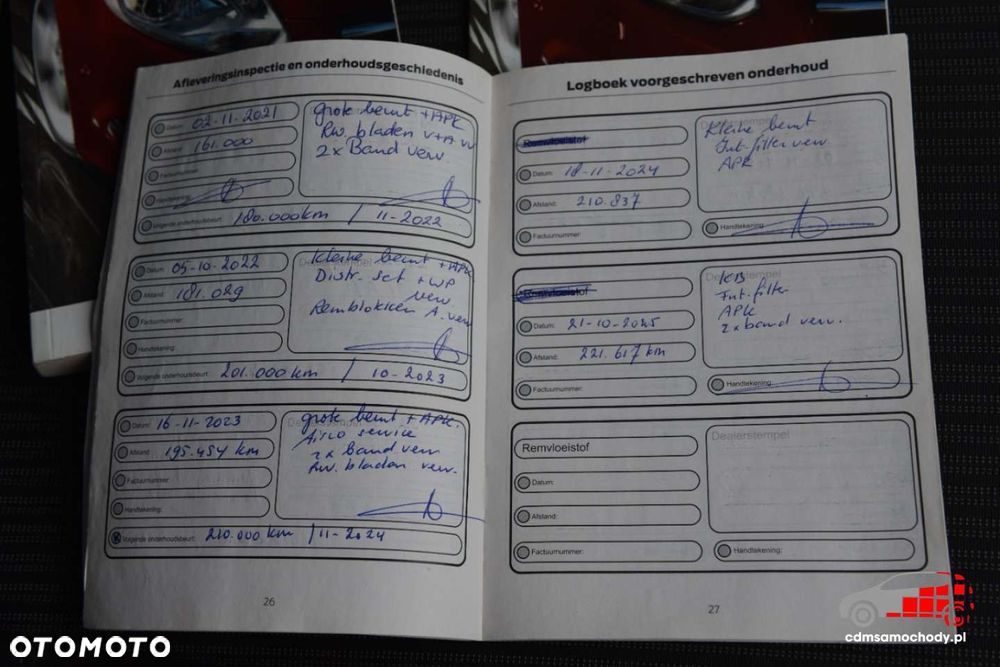 Afleveringsinspectie en onderhoudsgeschiedenis
Datum: 02-11-2021
Afstand: 161.000
Factuurnummer:
Handtekening:
Volgende onderhoudsbeurt: 180.000km / 11-2022
grote beurt + APK
Rw. bladen V+A
2x Band verv.
Datum: 05-10-2022
Afstand: 181.029
Factuurnummer:
Handtekening:
Volgende onderhoudsbeurt: 201.000km / 10-2023
Dealerstempel
kleine beurt + APK
Distr. set + WP
verv
Remblokken A. verv
Datum: 16-11-2023
Afstand: 195.454 km
Factuurnummer:
Handtekening:
Volgende onderhoudsbeurt: 210.000 km / 11-2024
Dealerstempel
grote beurt + APK.
Airco service
2x Band verv
Rw. bladen verv.
26
Logboek voorgeschreven onderhoud
Remvloeistof
Datum: 18-11-2024
Afstand: 210.837
Factuurnummer:
Dealerstempel
kleine beurt
Int-filter verv
APK
Handtekening:
Remvloeistof
Datum: 21-10-2025
Afstand: 221.617 km
Factuurnummer:
Dealerstempel
KB
Int-filter
APK
2x band verv.
Handtekening:
Remvloeistof
Datum:
Afstand:
Factuurnummer:
Dealerstempel
Handtekening:
27
OTOMOTO
cdmsamochody.pl